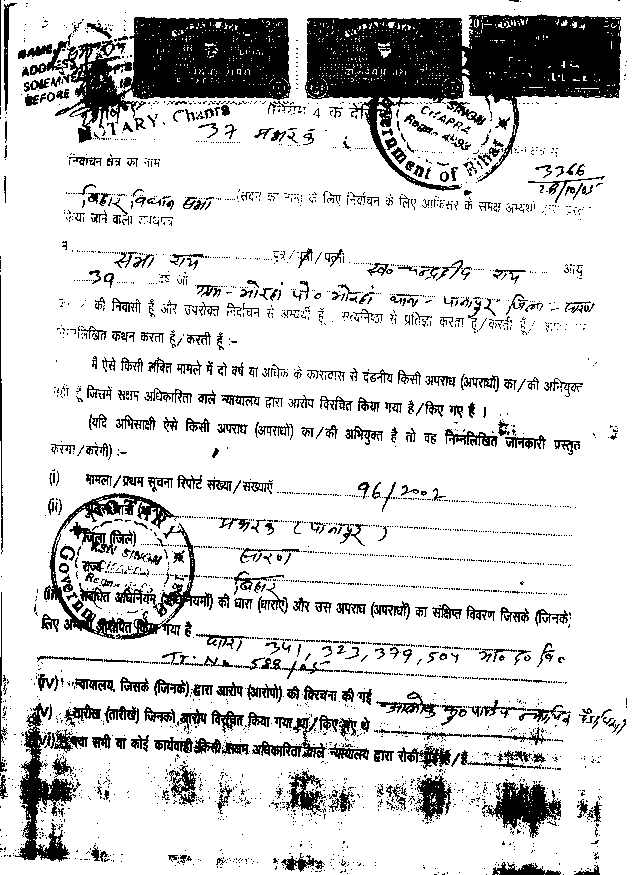 NAME
ADDRESS
SOLEMNE
BEFORE
NOTARY, Chapra
37 मशरक
KSN SINGH
CHAPRA
Regn
Government of Bihar
निर्वाचन क्षेत्र का नाम
3366
28/10/05
बिहार विधान सभा (सदन का नाम) के लिए निर्वाचन के लिए आफिसर के समक्ष अभ्यर्थी द्वारा प्रस्तुत
किया जाने वाला शपथपत्र
मैं सभा राय पुत्र/पुत्री/पत्नी स्व० चन्द्रदीप राय आयु
39 वर्ष जो ग्राम - मोरहां पो० मोरहां थाना - पानापुर जिला - सारण
का/की निवासी हूँ और उपरोक्त निर्वाचन से अभ्यर्थी हूँ, सत्यनिष्ठा से प्रतिज्ञा करता हूँ/करती हूँ/
निम्नलिखित कथन करता हूँ/करती हूँ :-
मै ऐसे किसी लंबित मामले में दो वर्ष या अधिक के कारावास से दंडनीय किसी अपराध (अपराधों) का/की अभियुक्त
नहीं हूँ जिसमें सक्षम अधिकारिता वाले न्यायालय द्वारा आरोप विरचित किया गया है/किए गए हैं ।
(यदि अभिसाक्षी ऐसे किसी अपराध (अपराधों) का/की अभियुक्त है तो वह निम्नलिखित जानकारी प्रस्तुत
करेगा/करेगी) :-
(i) मामला/प्रथम सूचना रिपोर्ट संख्या/संख्याएँ 96/2002
(ii) मशरक (पानापुर)
जिला (जिले) सारण
राज्य बिहार
NOTARY
KSN SINGH
Regn
Government
(iii) संबंधित अधिनियम (अधिनियमों) की धारा (धाराएँ) और उस अपराध (अपराधों) का संक्षिप्त विवरण जिसके (जिनके)
लिए अभ्यर्थी आरोपित किया गया है धारा 341, 323, 379, 504 भा० द० वि०
Tr. No 588/05
(iv) न्यायालय, जिसके (जिनके) द्वारा आरोप (आरोपों) की विरचना की गई
(v) तारीख (तारीखें) जिनको आरोप विरचित किया गया था/किए गए थे
(vi) क्या सभी या कोई कार्यवाही किसी सक्षम अधिकारिता वाले न्यायालय द्वारा रोकी गई है/हैं